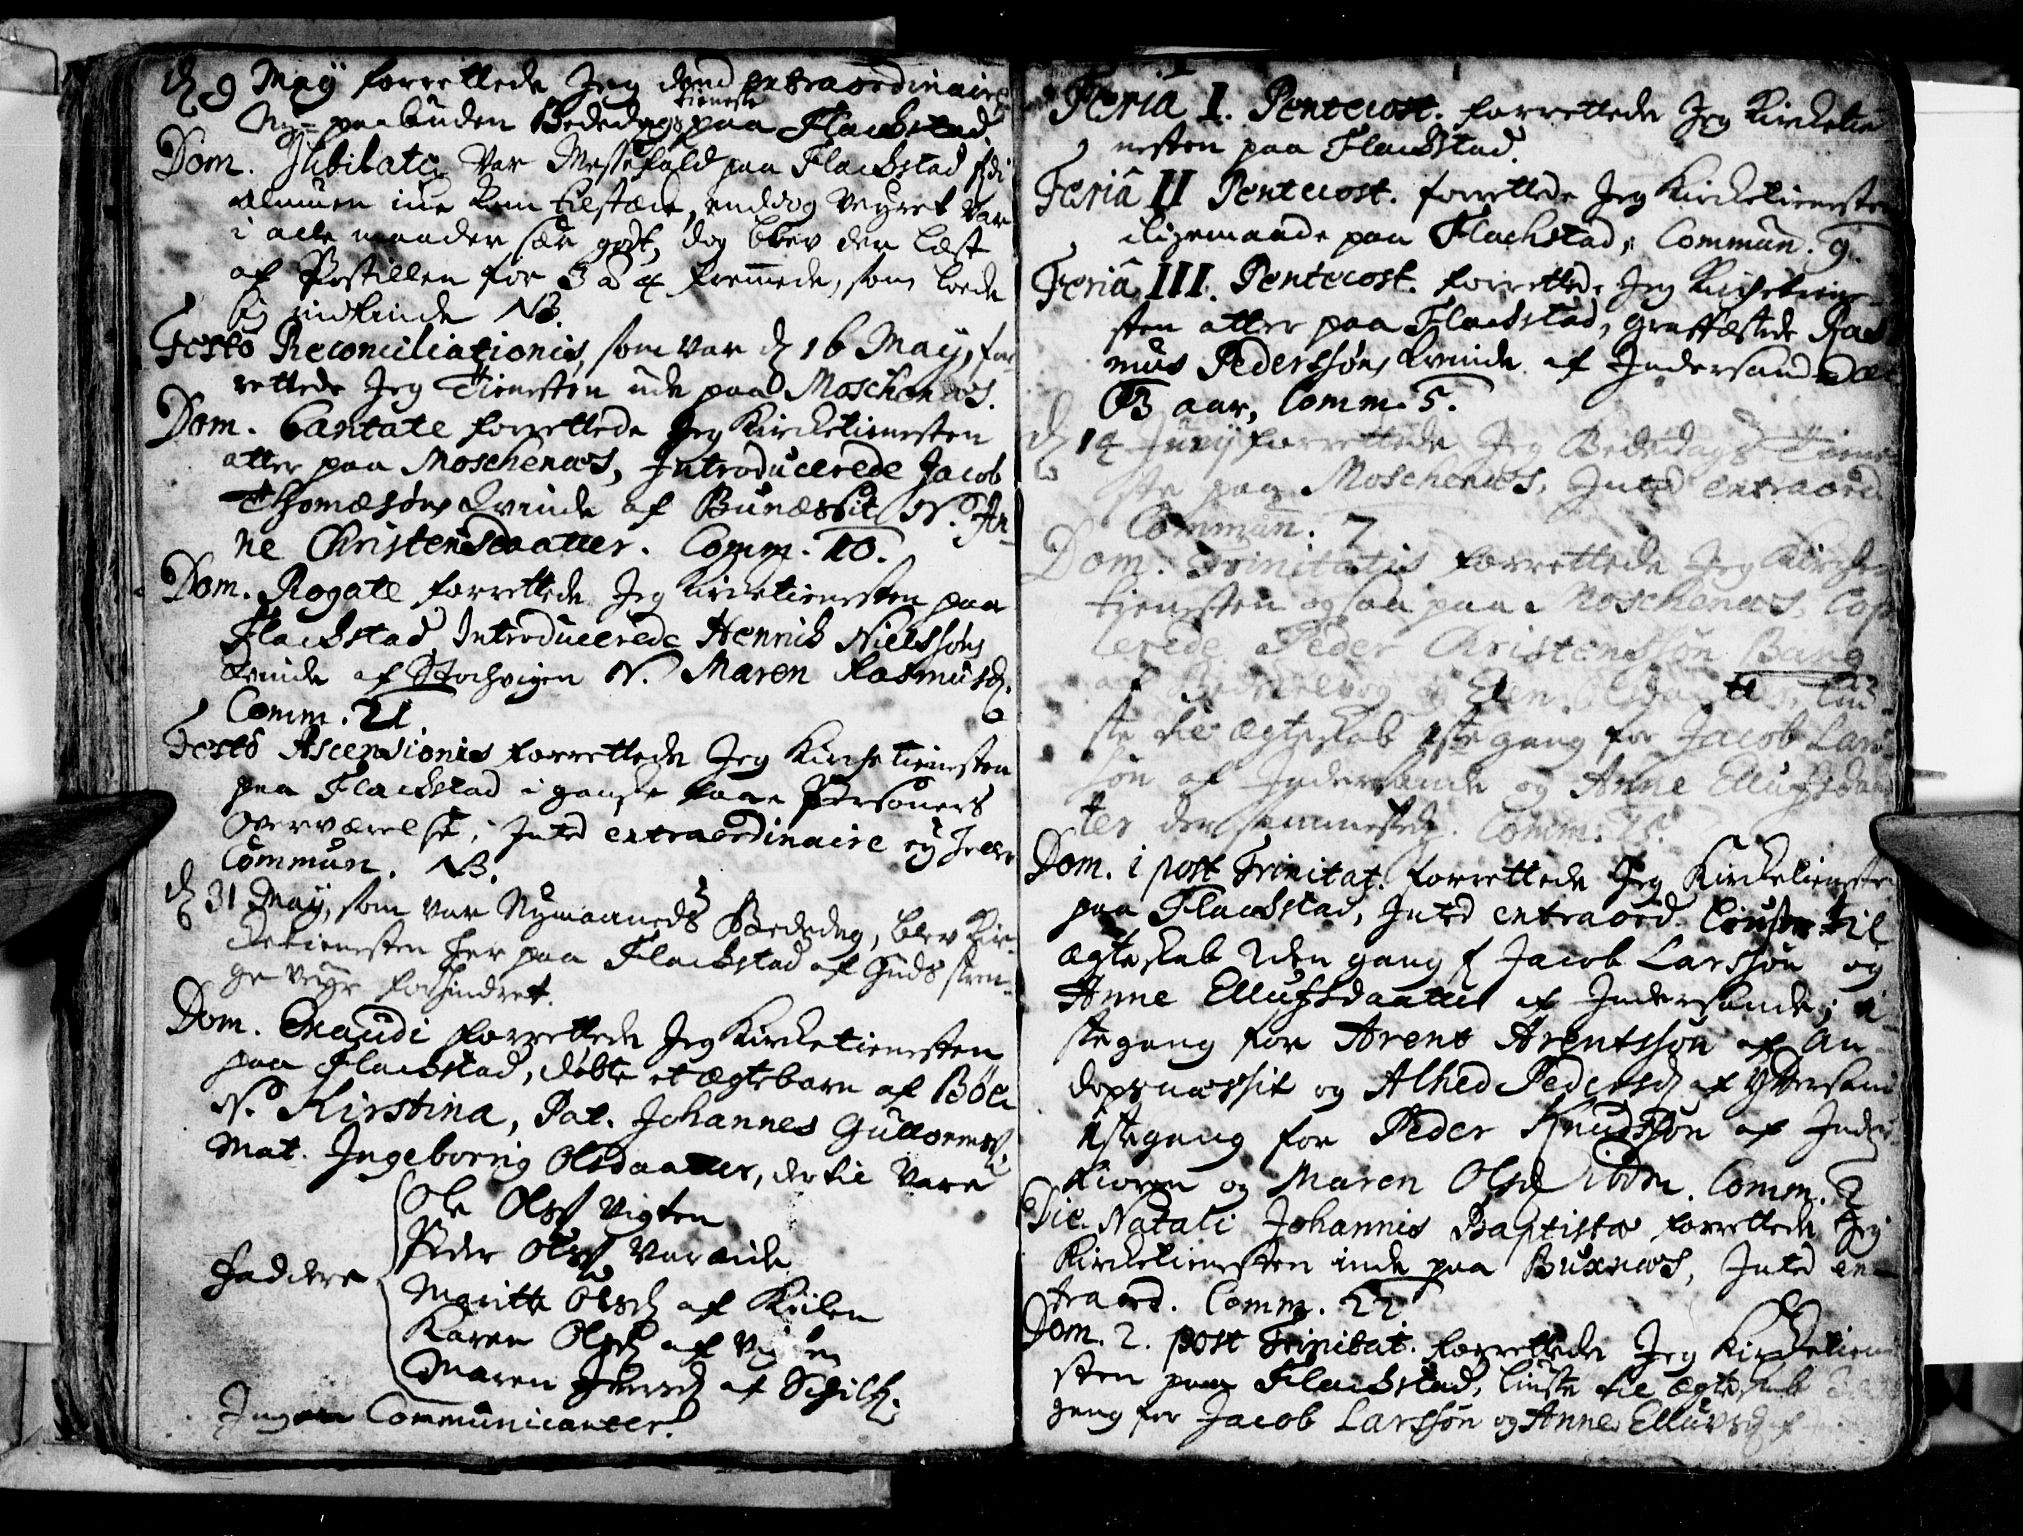 d 9 Maÿ forrettede Jeg dend extraordinaire
Nÿ= paabuden Bededags tieneste paa Flackstad.
Dom. Jubilate var Messefald paa Flackstad fordi
almuen icke kom tilstæde, endog veyret var
i alle maader for got, dog blev der læst
af Postillen for 3 a 4 fremmede, som loede
sig indfinde NB.
Festo Reconciliationis, som var d 16 Maÿ, for
rettede Jeg Tienesten ude paa Moschenæs.
Dom. Cantate forrettede Jeg Kircketienesten
atter paa Moschenæs, Introducerede Jacob
Thomæsøns Kvinde af Bunæssit N. An
ne Christensdaatter. Comm. 10.
Dom. Rogate forrettede Jeg Kircketienesten paa
Flackstad Introducerede Henrich Nielssøns
Kvinde af Stochvigen N. Maren Rasmusd.
Comm. 21.
Festo Ascensionis forrettede Jeg Kircketienesten
paa Flackstad i ganske faae Personers
Overværelse, Inted extraordinaire ej heller
Commun. NB.
d 31 Maÿ, som var Nymaaneds Bededag, blev Kir-
cketienesten her paa Flackstad af Guds stren-
ge veyr forhindret.
Dom. Exaudi forrettede Jeg Kircketienesten
paa Flackstad, døbte et ægtebarn af Böe
N. Kirstina, Pat. Johannes Gulloms.
Mat. Ingeborrig Olsdaatter, dertil vare
Ole Olss Vigten
Peder Olss
Faddere
Maritte Olsd af Kiilen
Karen Olsd af Vigten
Maren Iversd af
Ingen Communicanter.
Feria I. Pentecost. forrettede Jeg Kircketie
nesten paa Flackstad.
Feriâ II Pentecost. forrettede Jeg Kircketienesten
iligemaade paa Flachstad, Commun. 9.
Feriâ III. Pentecost. forrettede Jeg Kircketiene-
sten atter paa Flackstad, graffæstede Ras
mus Pederssøns Kvinde af Indersand æt
63 aar, Comm. 5.
d 14 Junÿ forrettede Jeg Bededags Tiene
ste paa Moschenæs, Inted extraord
Commun. 7
Dom. Trinitatis forrettede Jeg Kircke
tienesten ogsaa paa Moschenæs, Cop
lerede Peder Christensssøn Bang
af og Elen, liu-
ste til ægteskab 1ste gang for Jacob Lars
søn af Indersande og Anne Ellufsdaat
ter der sammesteds. Comm.
Dom. 1 post Trinitat. forrettede Jeg Kircketieneste
paa Flackstad, Inted extraord. liuste til
ægteskab 2den gang f Jacob Larssøn og
Anne Ellufsdaatter af Indersande; 1-
ste gang for Arent Arentssøn af An-
dopsnæssit og Alhed Pedersd af Yttersand
1ste gang for Peder Knudssøn af Inder
og Maren Olsd ibdm. Comm. 2
Die Natali Johannis Baptistæ forrettede Jeg
Kircketienesten inde paa Buxnæs, Inted ex-
traord. Comm. 22
Dom. 2. post Trinitat. forrettede Jeg Kircketiene
sten paa Flackstad, liuste til ægteskab
gang for Jacob Larssøn og Anne Elluvsd af